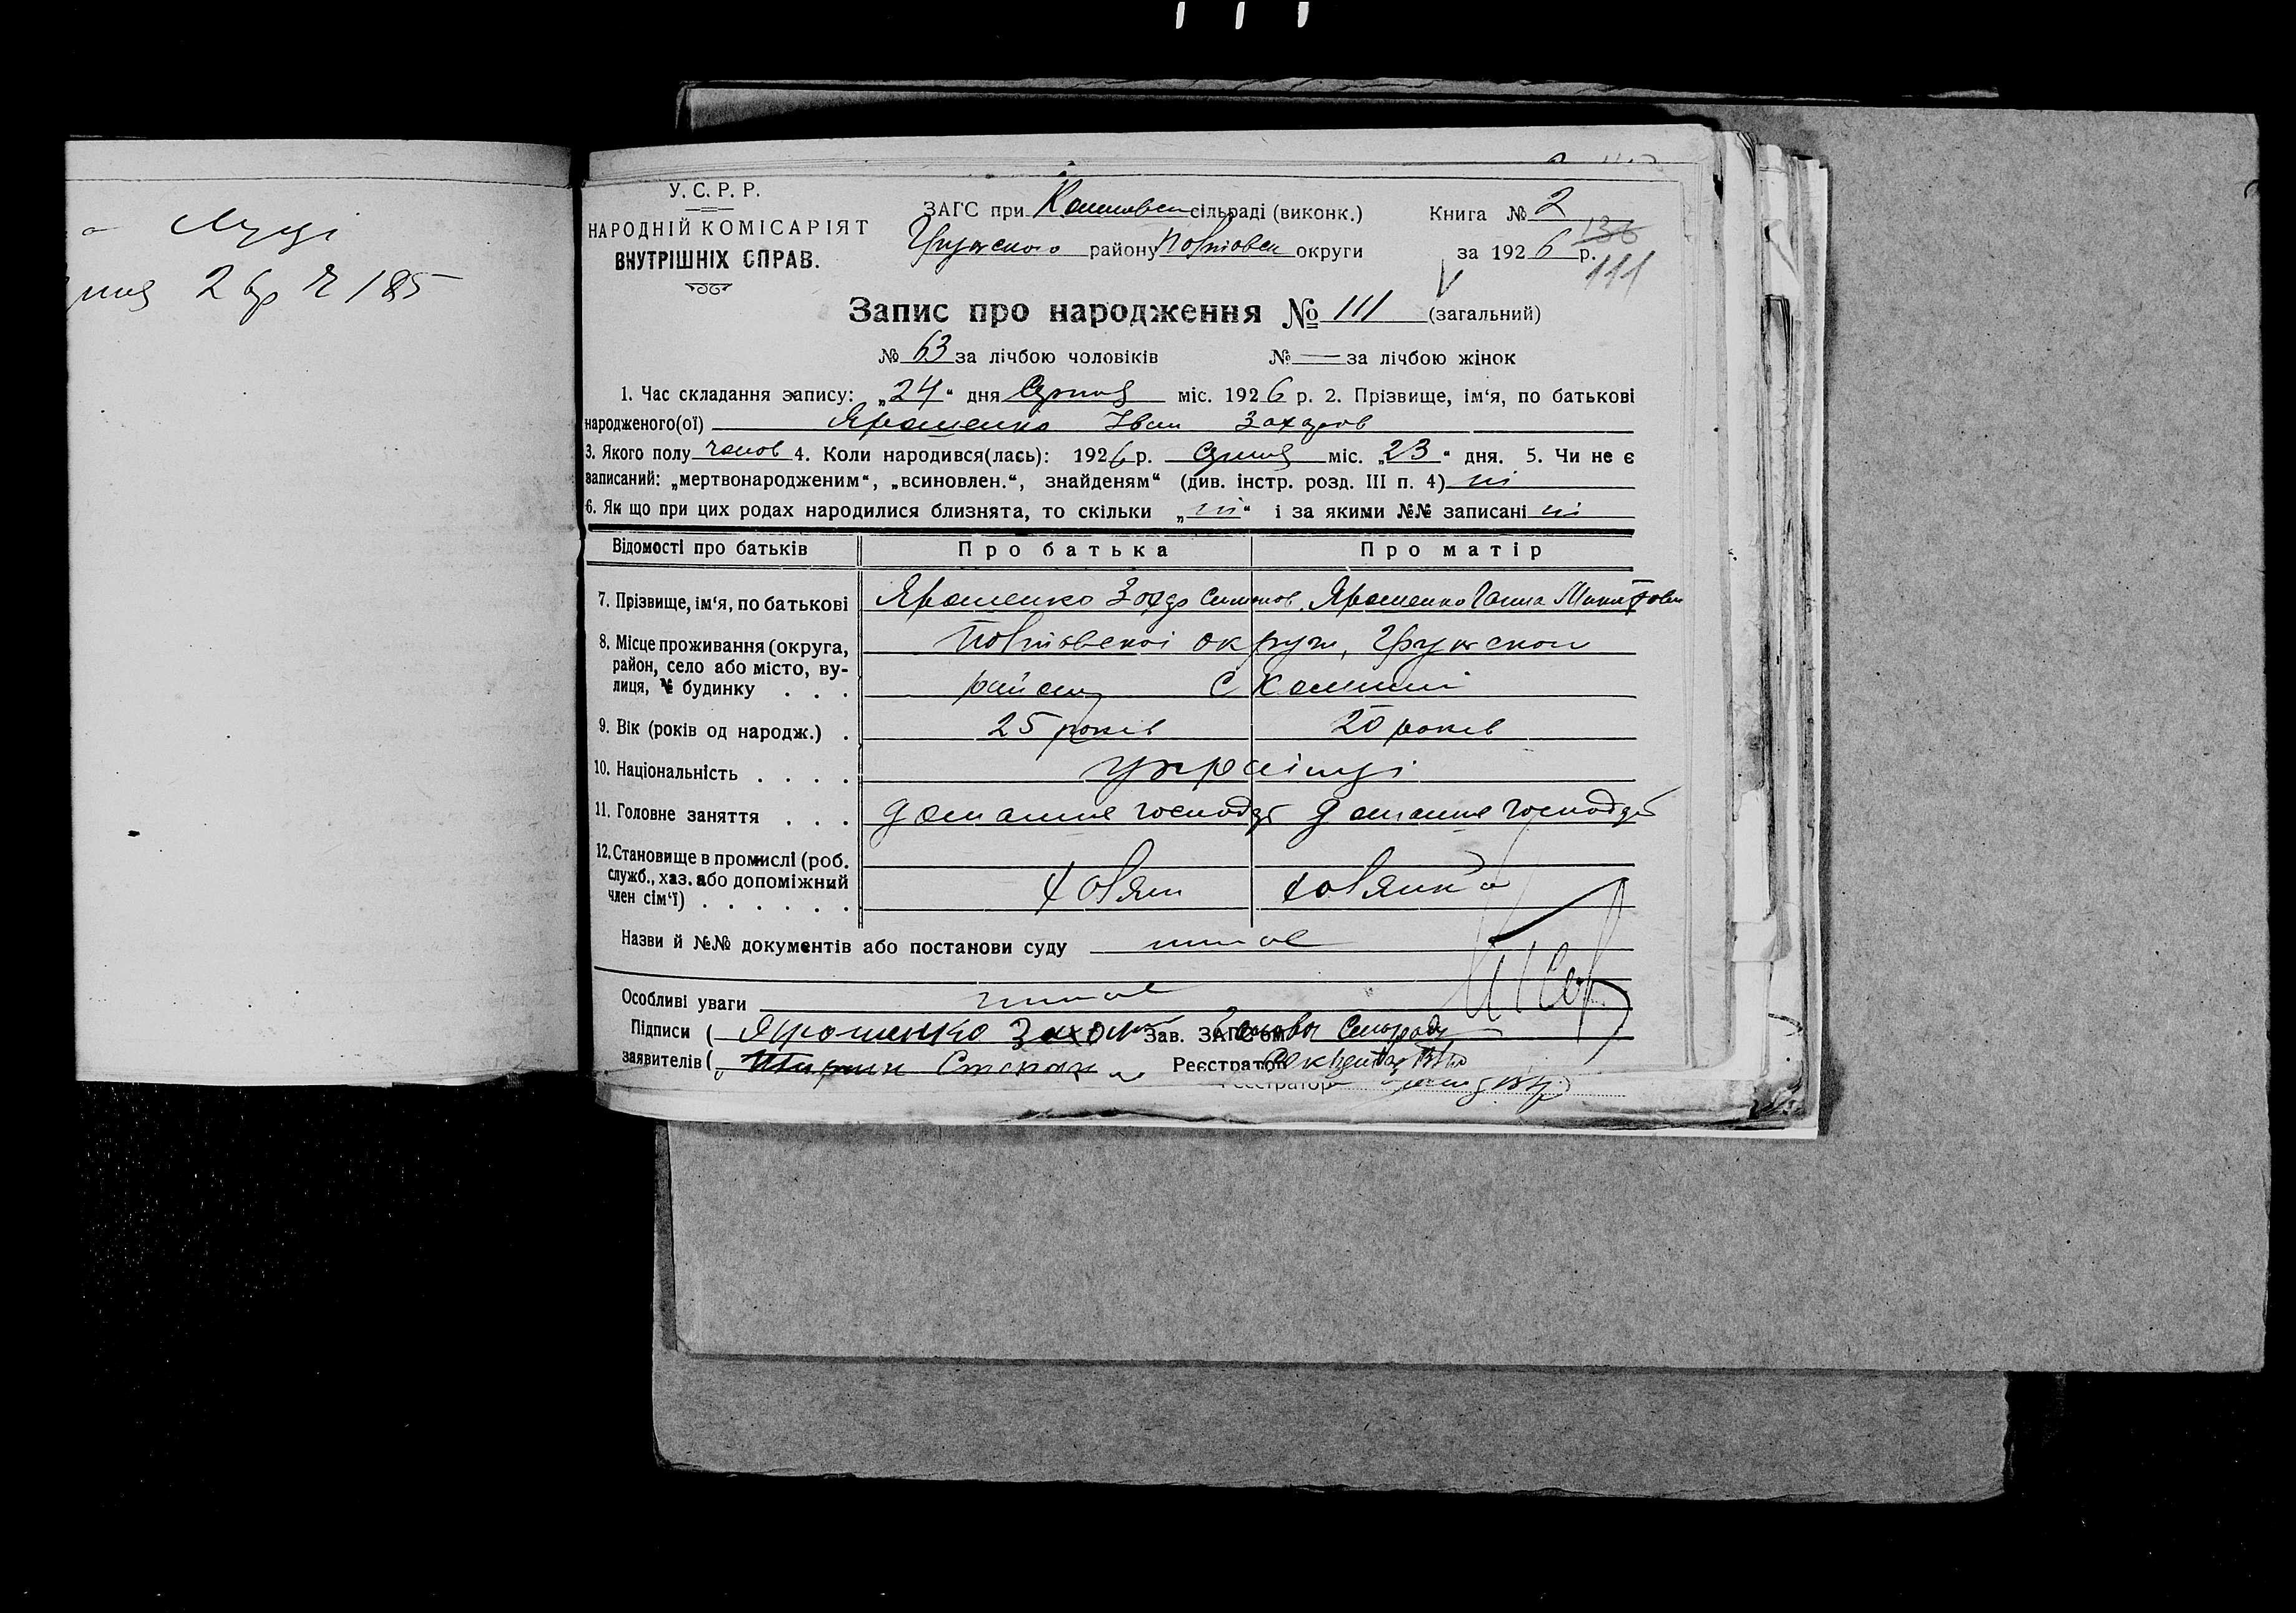 Луці
2 вр г 185
У. С. Р. Р.
НАРОДНІЙ КОМІСАРІЯТ
ВНУТРІШНІХ СПРАВ.
ЗАГС при сільраді (виконк.)
району округи
Книга № 2
за 1926 р.
136
111
Запис про народження № 111 (загальний)
№ 63 за лічбою чоловіків № — за лічбою жінок
1. Час складання запису: „24“ дня Серпня міс. 1926 р. 2. Прізвище, ім‘я, по батькові
народженого(ої) Ярошенко Іван Захаров
3. Якого полу чолов 4. Коли народився(лась): 1926 р. Серпня міс. „23“ дня. 5. Чи не є
записаний: „мертвонародженим“, „всиновлен.“, знайденям“ (див. інстр. розд. III п. 4) ні
6. Як що при цих родах народилися близнята, то скільки „ні“ і за якими №№ записані ні
Відомості про батьків Про батька Про матір
7. Прізвище, ім‘я, по батькові Ярошенко Захар Симонов. Ярошенко Ганна Микитовн
8. Місце проживання (округа,
район, село або місто, ву-
лиця, № будинку . . .
округи,
району С
9. Вік (років од народж.) . 25 років 20 років
10. Національність . . . . українці
11. Головне заняття . . . домашнє господар домашнє господар
12. Становище в промислі (роб.
служб., хаз. або допоміжний
член сім‘ї) . . . . . .
хозяїн хозяйка
Назви й №№ документів або постанови суду немає
Особливі уваги немає
Підписи ( Ярошенко Захар Зав. ЗАГС‘ом Голова Сільради
заявителів ( Степан Реєстратор Секретар
Реєстратор